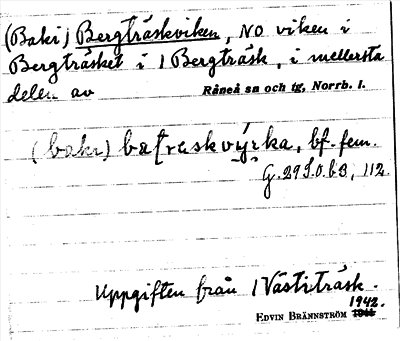 (Bakr) Bergträskviken, NO viken i
Bergträsket i 1 Bergträsk, i mellersta
delen av Råneå sn och tg, Norrb. l.
(bakr) bf. fem.
G. 29 112.
Uppgiften från 1 Västiträsk.
1942.
EDVIN BRÄNNSTRÖM 1941